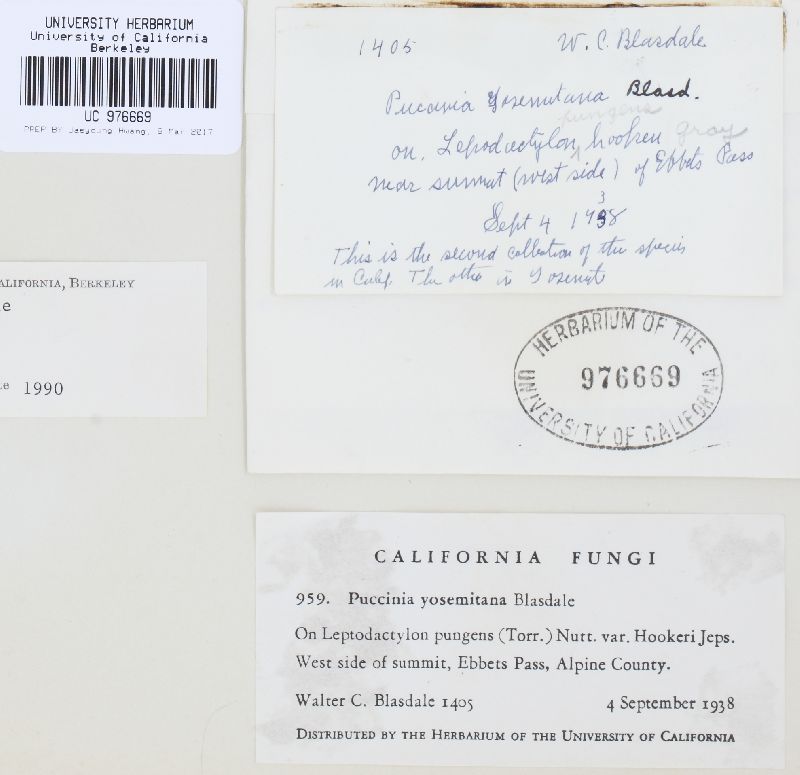 UNIVERSITY HERBARIUM
University of California
Berkeley
UC 976669
PREP BY Jaeyoung Hwang, 6 Mar 2017
1405 W. C. Blasdale
Puccinia Yosemitana Blasd.
pungens
on, Leptodactylon hookeri gray
near summit (west side) of Ebbets Pass
3
Sept 4 1938
This is the second collection of the species
in Calif. The other is Yosemite
ALIFORNIA, BERKELEY
1990
HERBARIUM OF THE
976669
UNIVERSITY OF CALIFORNIA
CALIFORNIA FUNGI
959. Puccinia yosemitana Blasdale
On Leptodactylon pungens (Torr.) Nutt. var. Hookeri Jeps.
West side of summit, Ebbets Pass, Alpine County.
Walter C. Blasdale 1405 4 September 1938
DISTRIBUTED BY THE HERBARIUM OF THE UNIVERSITY OF CALIFORNIA